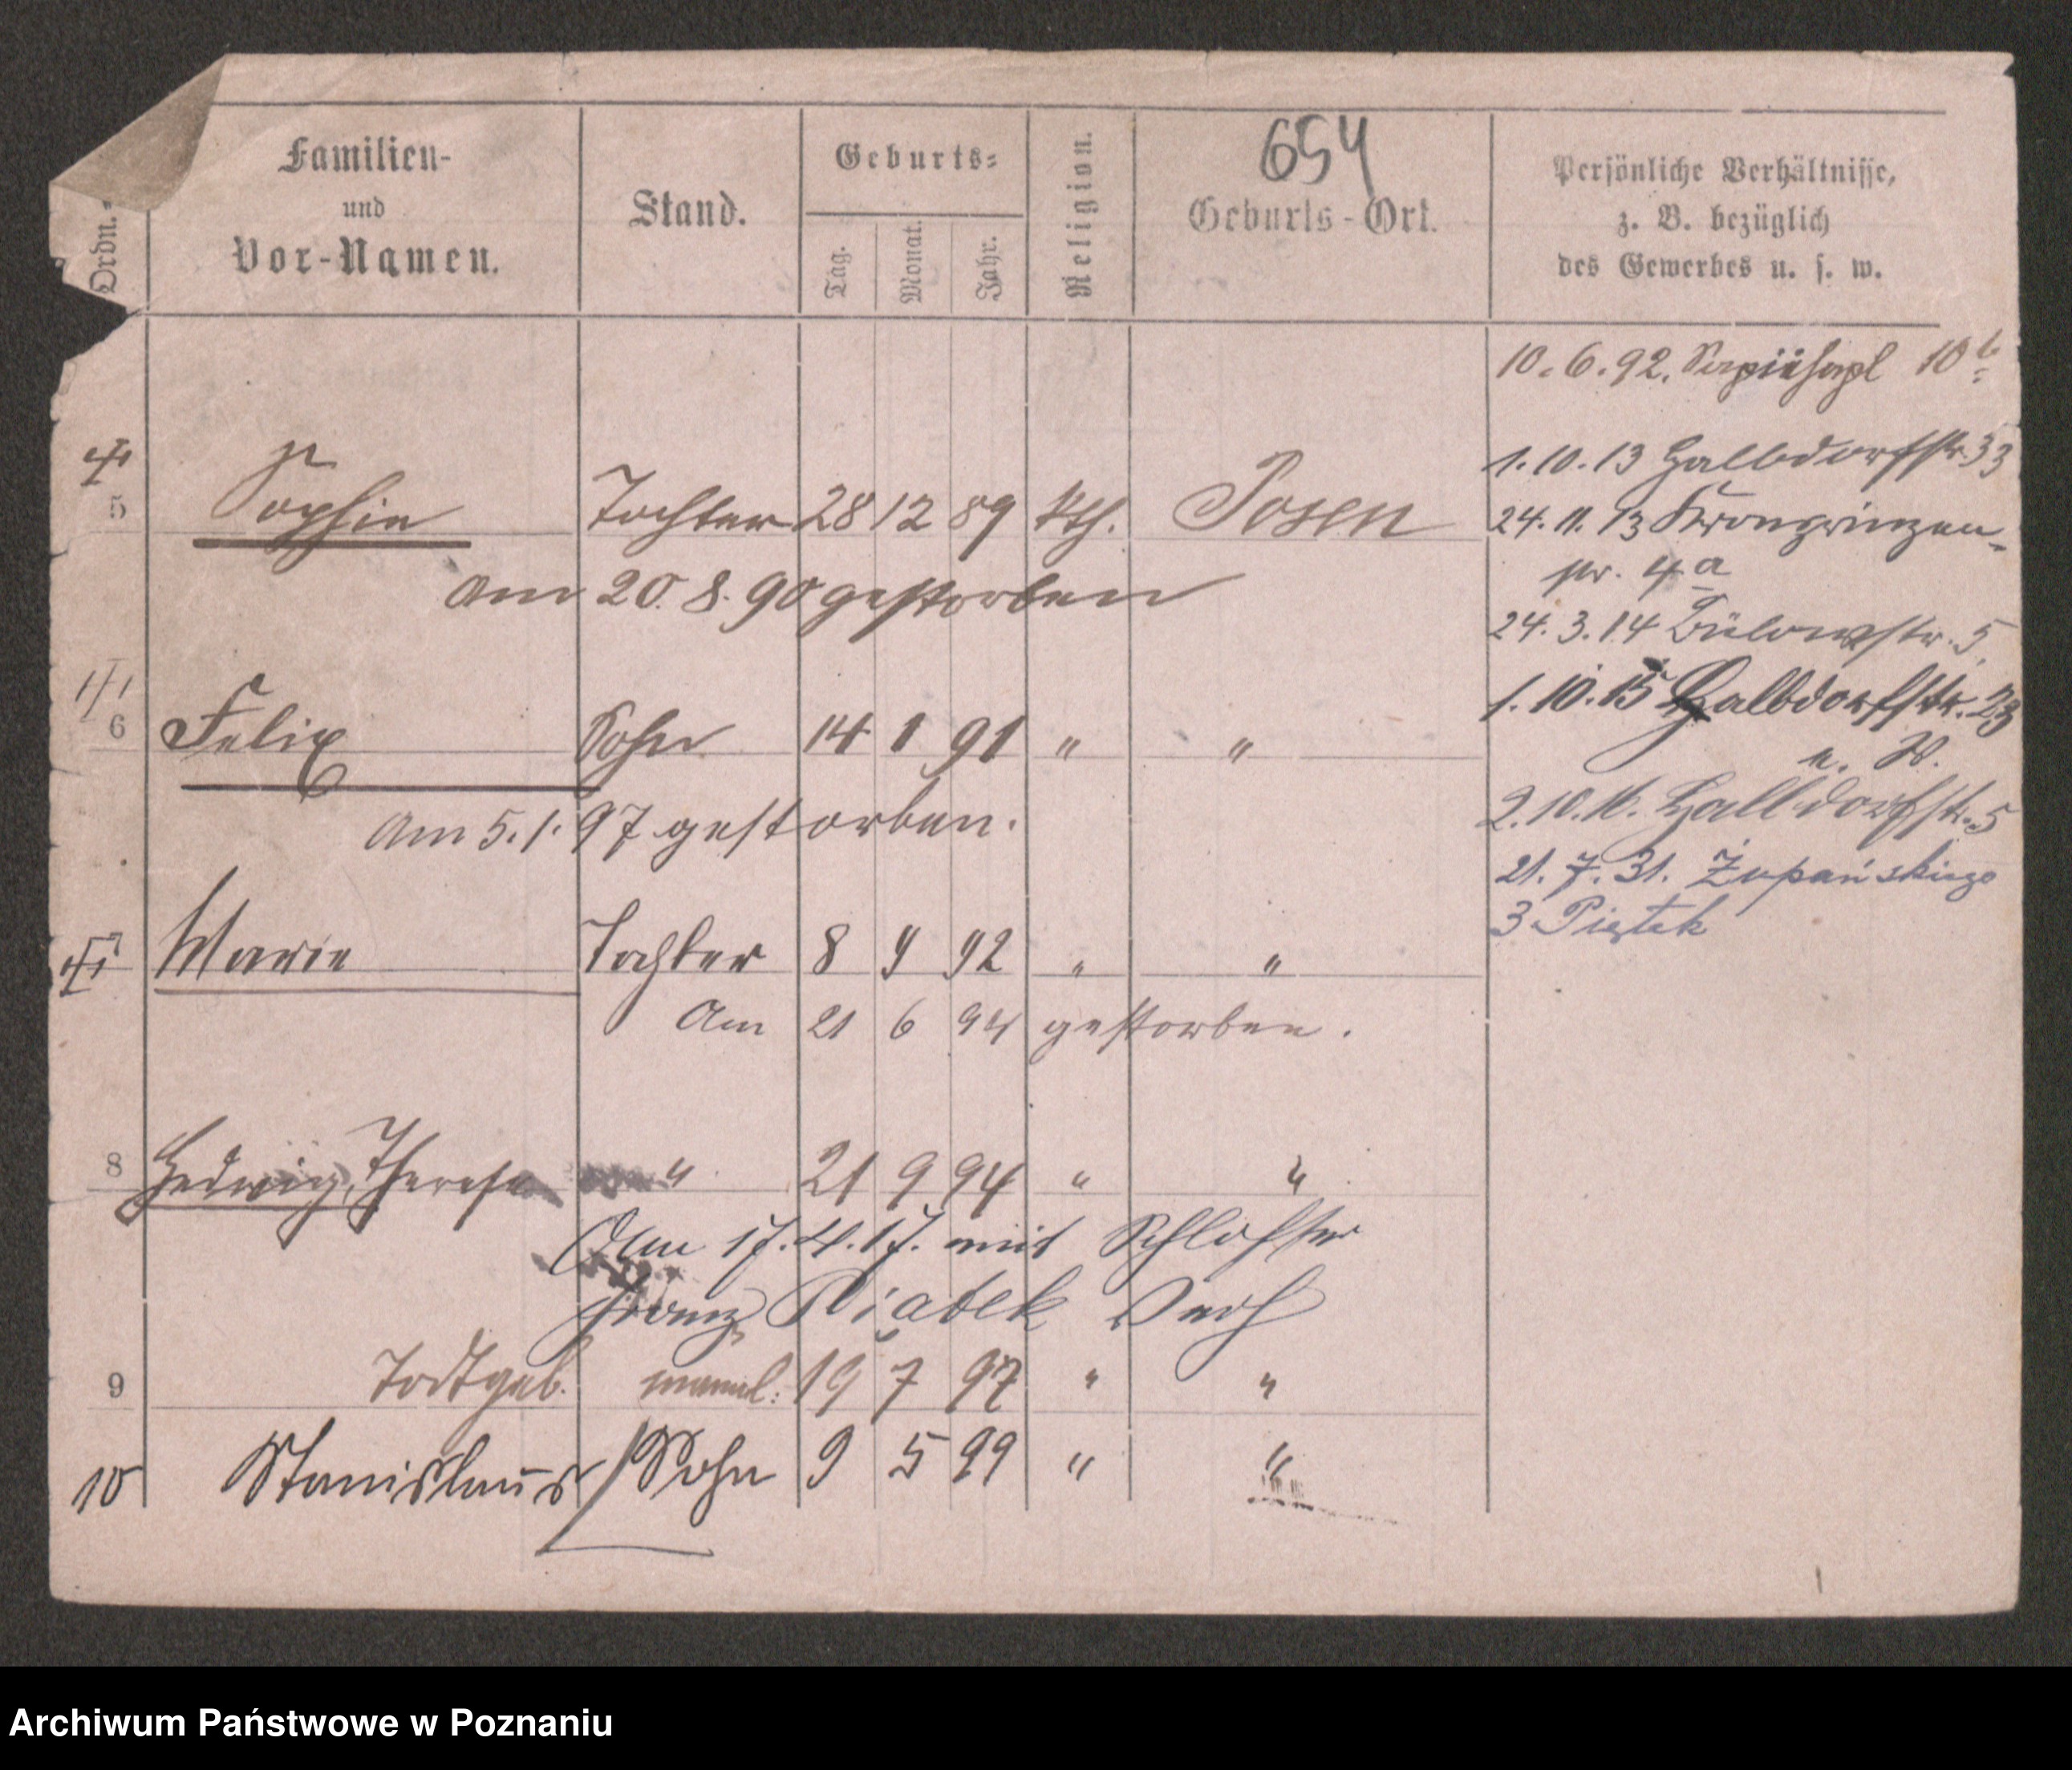 654
Ordn.-
Familien-
und
Vor-Namen.
Stand.
Geburts-
Tag.
Monat.
Jahr.
Religion.
Geburts-Ort.
Persönliche Verhältnisse,
z. B. bezüglich
des Gewerbes u. s. w.
10.6.92. Sapiehapl 10 b
5 Sophie Tochter 28 12 89 kth. Posen
am 20.8.90 gestorben
6 Felix Sohn 14 1 91 " "
Am 5.1.97 gestorben.
Marie Tochter 8 9 92 " "
Am 21 6 94 gestorben.
8 Hedwig, Therese " 21 9 94 " "
Am 17.4.17. mit Schlosser
Franz Piątek verh
9 Todtgeb. männl: 19 7 97 " "
10 Stanislaus Sohn 9 5 99 " "
1.10.13 Halbdorfstr. 33
24.11.13 Kronprinzen-
str. 4a
24.3.14 Bülowstr. 5
1.10.15 Halbdorfstr. 23
2.10.16. Halbdorfstr. 5
21.7.31. Żupańskiego
3 Piątek
Archiwum Państwowe w Poznaniu